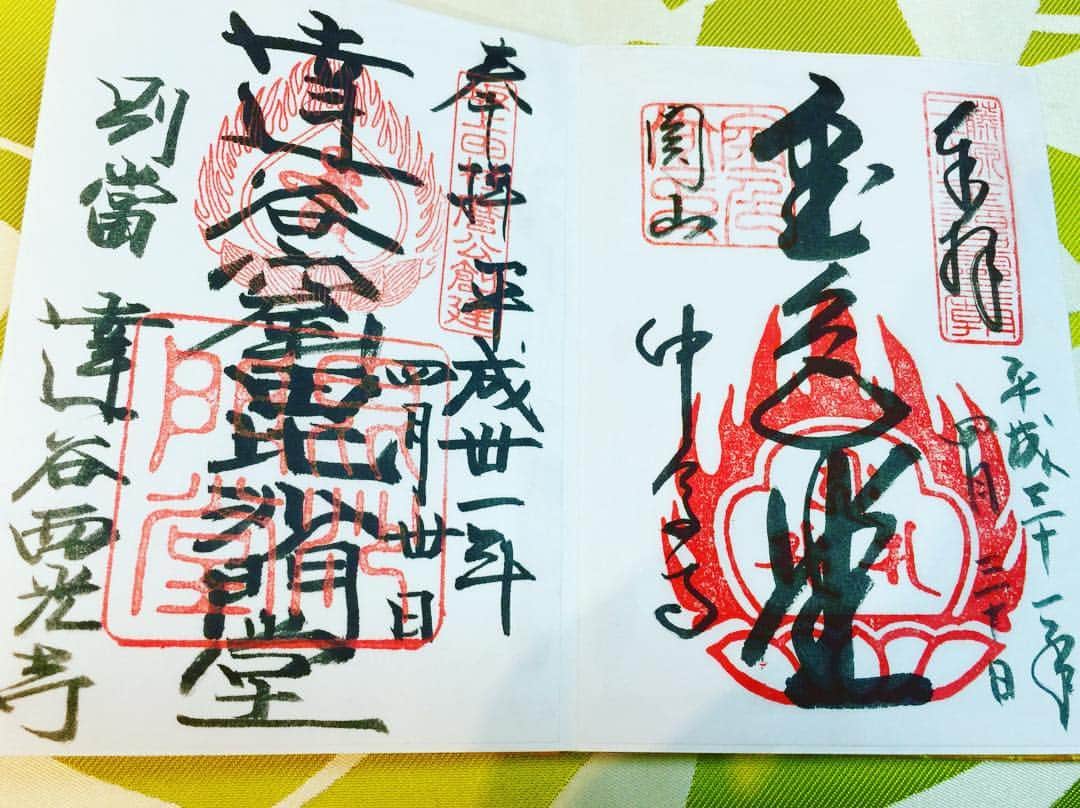 奉拝
平成三十一年
四月三十日
金色堂
関山
中尊寺
奉拝 平成丗一年
四月丗日
達谷窟毘沙門堂
別當
達谷西光寺